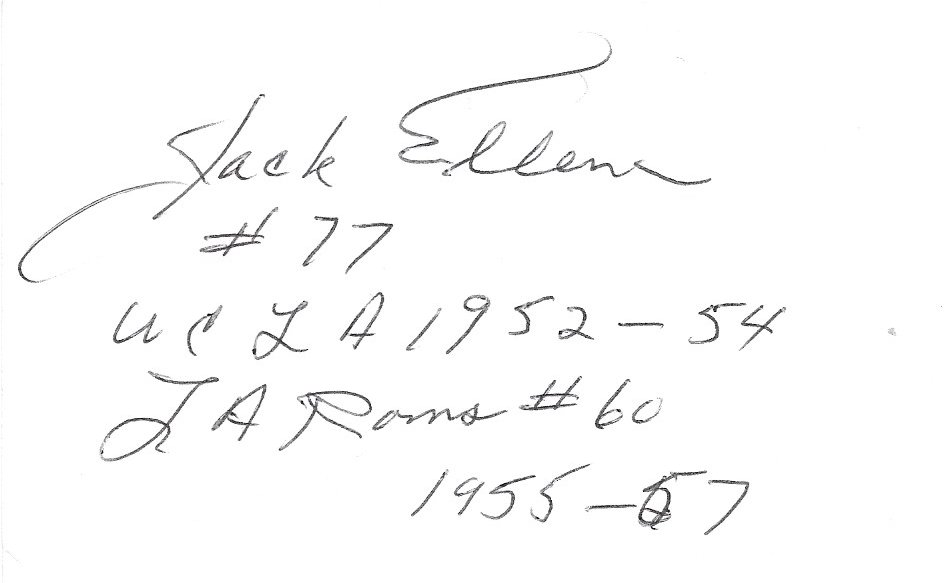 Jack Ellena
# 77
UCLA 1952-54
LA Rams #60
1955-57